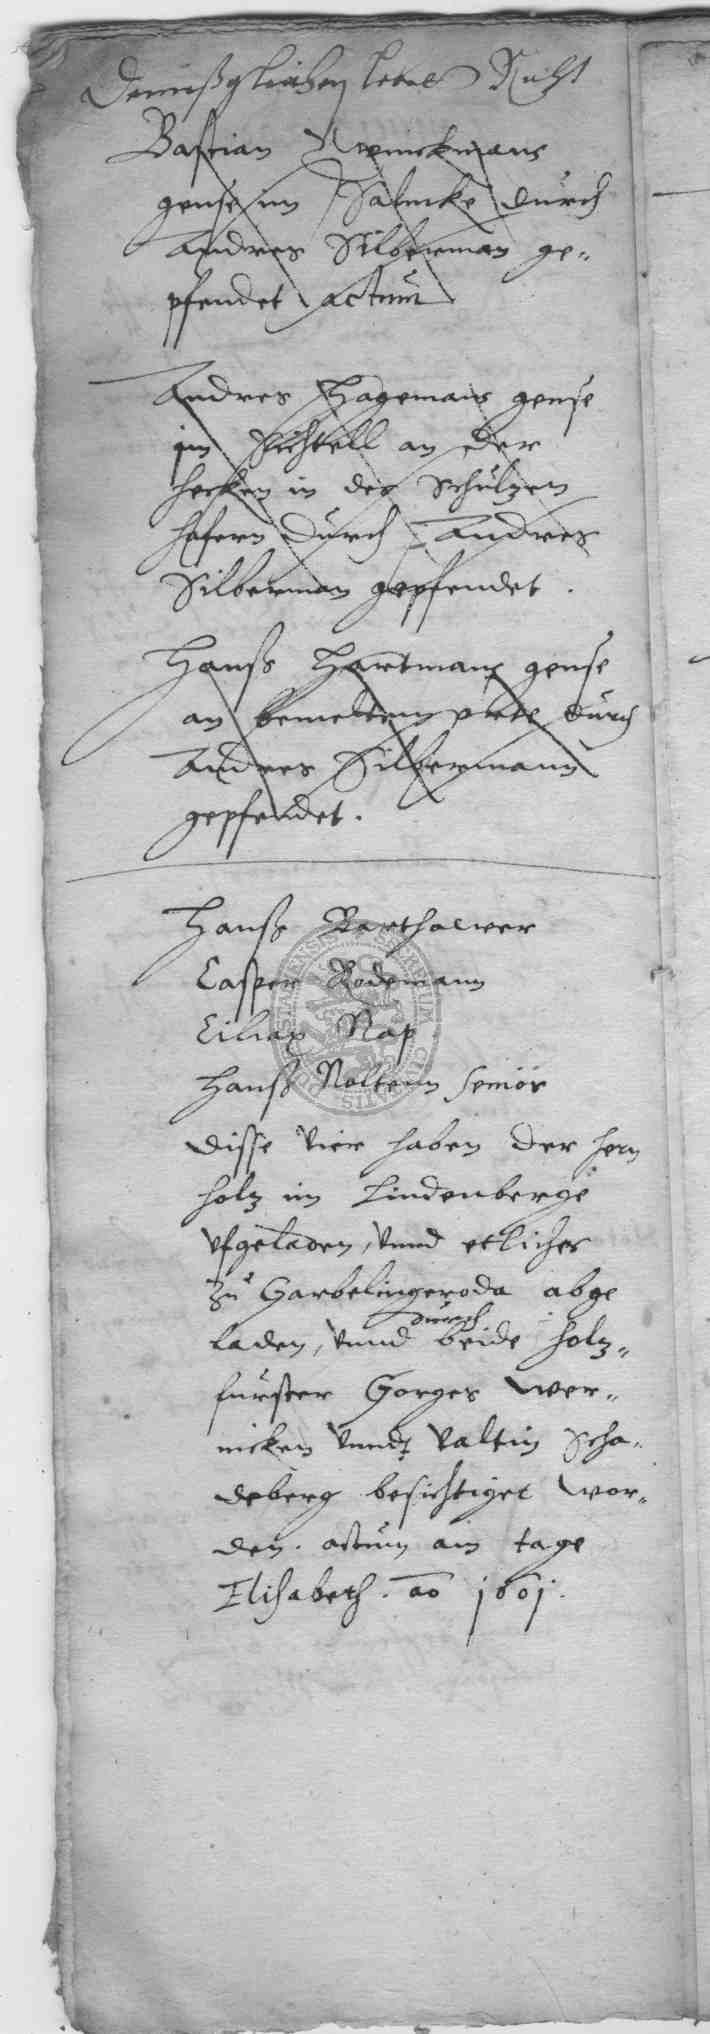 Bastian Wenickmans
gense im Salucke durch
Andres Silberman ge„
pfendet actum
Andres Hagemans gense
im an der
hecken in des Schulzen
hafern durch Andres
Silberman gepfendet.
Hanß Hartmans gense
an bemeltem orte durch
Andres Silbermann
gepfendet.
Hanß Barthawer
Casper Rodemann
Ciliax Rap
Hanß Noltenn Senior
disse vier haben der hern
holz im Lindenberge
ufgeladen, vnnd etliches
zu Garbelingeroda abge
laden, vnnd durch beide holz„
furster Gorges Wer„
nicken vnndt Valtin Scha„
deberg besichtiget wor„
den. actum am tage
Elisabeth. ao 1601.